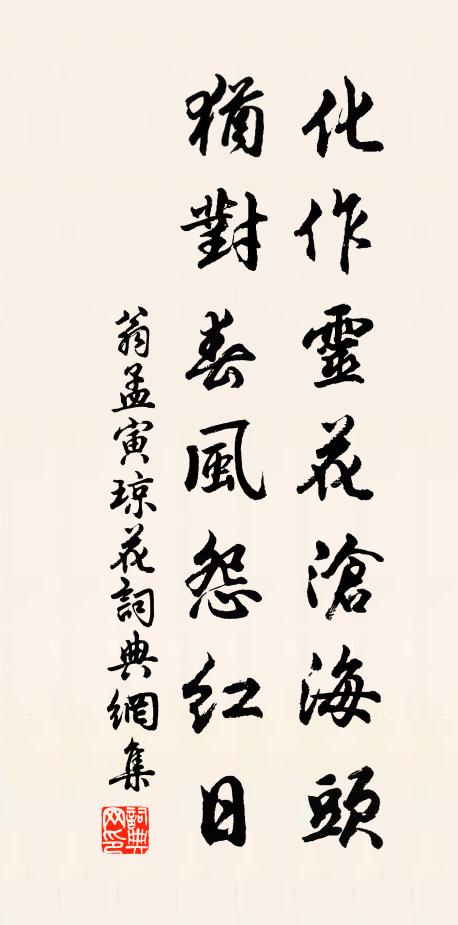 化作靈花滄海頭
猶對春風怨紅日
翁孟寅琼花詞典網集
詞典網印